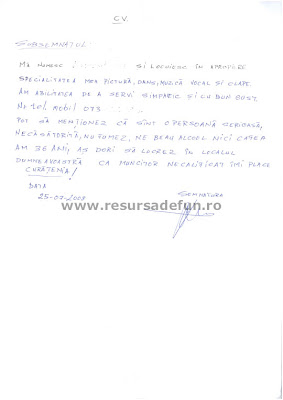 C.V.
SUBSEMNATUL:
MĂ NUMESC ȘI LOCUIESC ÎN APROPIERE
SPECIALITATEA MEA PICTURĂ, DANS, MUZICĂ VOCAL ȘI CLAPE.
AM ABILITATEA DE A SERVI SIMPATIC ȘI CU BUN GUST.
MOBIL 073
POT SĂ MENȚIONEZ CĂ SÎNT O PERSOANĂ SERIOASĂ,
NECĂSĂTORITĂ, NU FUMEZ, NE BEAU ALCOOL NICI CAFEA
AM 36 ANI, AȘ DORI SĂ LUCREZ ÎN LOCALUL
DUMNEAVOASTRĂ CA MUNCITOR NECALIFICAT ÎMI PLACE
CURĂȚENIA!
DATA SEMNATURA
www.resursadefun.ro